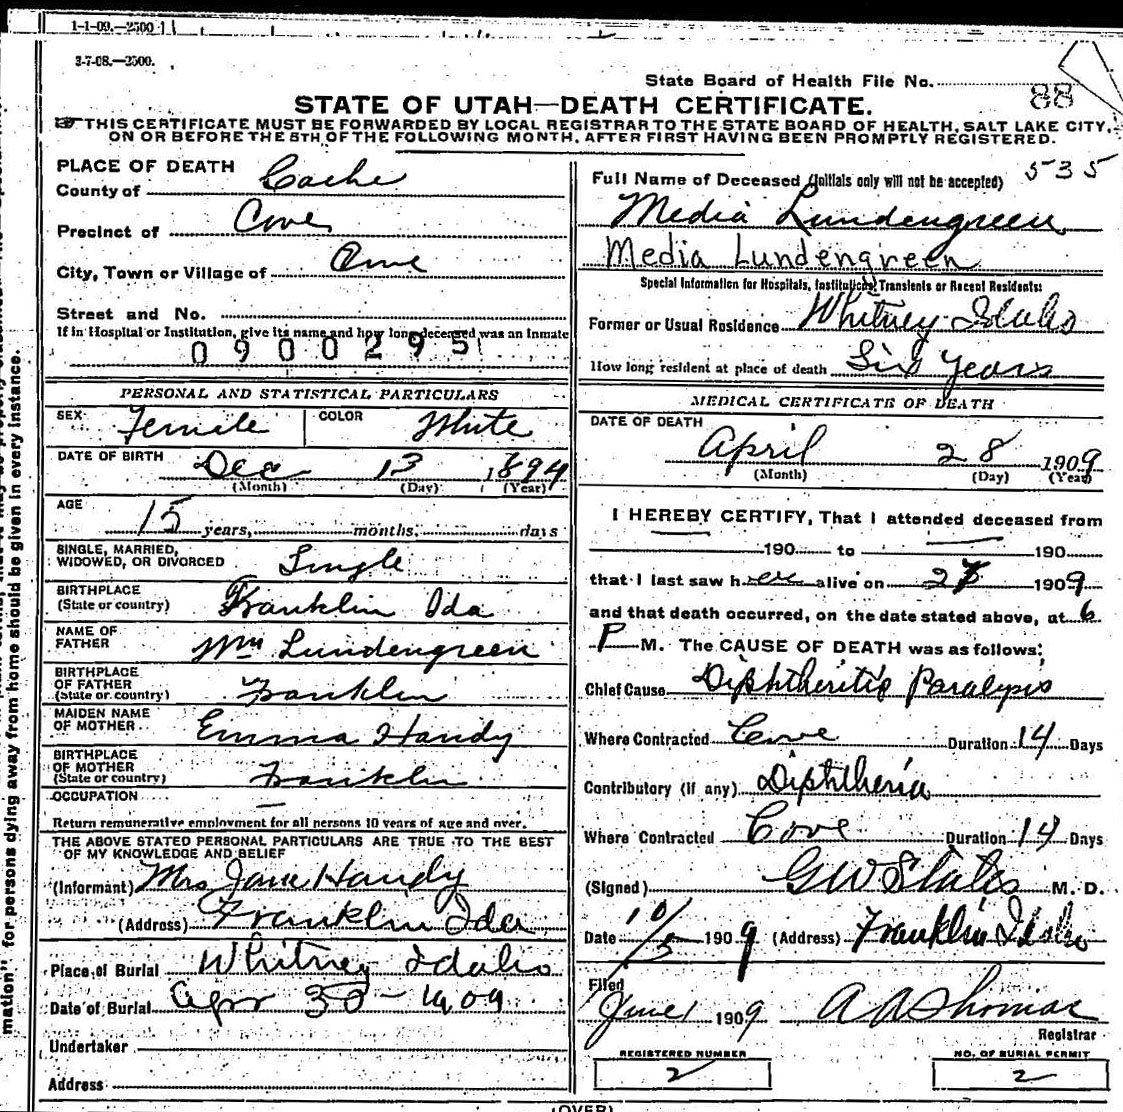 1-1-09.—2500
3-7-08.—2500.
State Board of Health File No. 88
STATE OF UTAH—DEATH CERTIFICATE.
THIS CERTIFICATE MUST BE FORWARDED BY LOCAL REGISTRAR TO THE STATE BOARD OF HEALTH, SALT LAKE CITY,
ON OR BEFORE THE 5TH OF THE FOLLOWING MONTH, AFTER FIRST HAVING BEEN PROMPTLY REGISTERED.
PLACE OF DEATH
County of Cache
Precinct of Cove
City, Town or Village of Cove
Street and No.
If in Hospital or Institution, give its name and how long deceased was an Inmate
0900295
PERSONAL AND STATISTICAL PARTICULARS
SEX Female COLOR White
DATE OF BIRTH Dec 13 1894
(Month) (Day) (Year)
AGE
15 years, months, days
SINGLE, MARRIED,
WIDOWED, OR DIVORCED Single
BIRTHPLACE
(State or country) Franklin Ida
NAME OF
FATHER Wm Lundengreen
BIRTHPLACE
OF FATHER
(State or country) Franklin
MAIDEN NAME
OF MOTHER Emma Handy
BIRTHPLACE
OF MOTHER
(State or country) Franklin
OCCUPATION —
Return remunerative employment for all persons 10 years of age and over.
THE ABOVE STATED PERSONAL PARTICULARS ARE TRUE TO THE BEST
OF MY KNOWLEDGE AND BELIEF
(Informant) Mrs Jane Handy
(Address) Franklin Ida
Place of Burial Whitney Idaho
Date of Burial Apr 30 - 1909
Undertaker
Address
535
Full Name of Deceased (Initials only will not be accepted)
Media Lundengreen
Media Lundengreen
Special Information for Hospitals, Institutions, Transients or Recent Residents:
Former or Usual Residence Whitney Idaho
How long resident at place of death Six Years
MEDICAL CERTIFICATE OF DEATH
DATE OF DEATH
April 28 1909
(Month) (Day) (Year)
I HEREBY CERTIFY, That I attended deceased from
190 to 190
that I last saw her alive on 27 1909
and that death occurred, on the date stated above, at 6
P M. The CAUSE OF DEATH was as follows:
Chief Cause Diphtheritis Paralysis
Where Contracted Cove Duration 14 Days
Contributory (if any) Diphtheria
Where Contracted Cove Duration 14 Days
(Signed) GW States M. D.
Date 10/5 1909 (Address) Franklin Idaho
Filed
June 1 1909 A A Thomas
Registrar
REGISTERED NUMBER
2
NO. OF BURIAL PERMIT
2
(OVER)
mation" for persons dying away from home should be given in every instance.